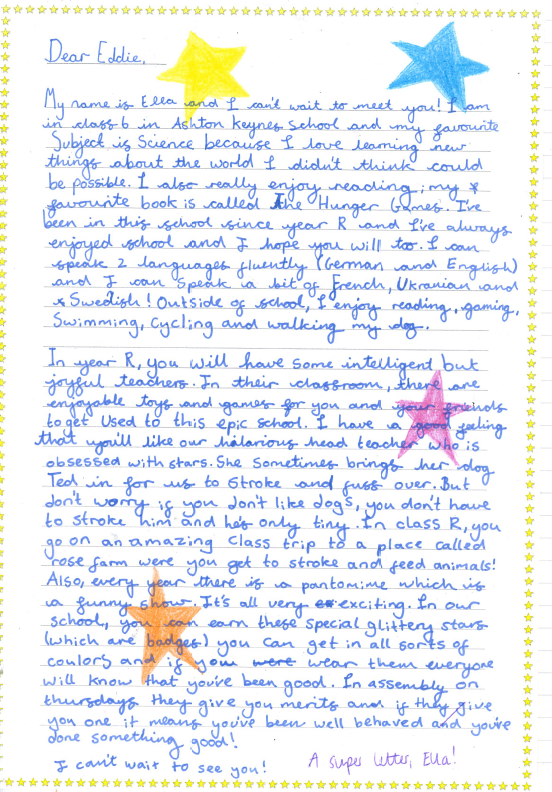 Dear Eddie,
My name is Ella and I can't wait to meet you! I am
in class 6 in Ashton Keynes School and my favourite
Subject is Science because I love learning new
things about the world I didn't think could
be possible. I also really enjoy reading; my
favourite book is called The Hunger Games. I've
been in this school since year R and I've always
enjoyed school and I hope you will too. I can
speak 2 languages fluently (German and English)
and I can speak a bit of French, Ukranian and
Swedish! Outside of school, I enjoy reading, gaming,
Swimming, Cycling and walking my dog.
In year R, you will have some intelligent but
joyful teachers. In their classroom, there are
enjoyable toys and games for you and your friends
to get used to this epic school. I have a good feeling
that you'll like our halarious head teacher who is
obsessed with stars. She sometimes brings her dog
Ted in for us to stroke and fuss over. But
don't worry if you don't like dogs, you don't have
to stroke him and he's only tiny. In class R, you
go on an amazing class trip to a place called
rose farm were you get to stroke and feed animals!
Also, every year there is a pantomime which is
a funny show. It's all very exciting. In our
school, you can earn these special glittery stars
(which are badges) you can get in all sorts of
coulors and if you were wear them everyone
will know that you've been good. In assembly on
thursdays they give you merits and if they give
you one it means you've been well behaved and you've
done something good!
I can't wait to see you!
A super letter, Ella!